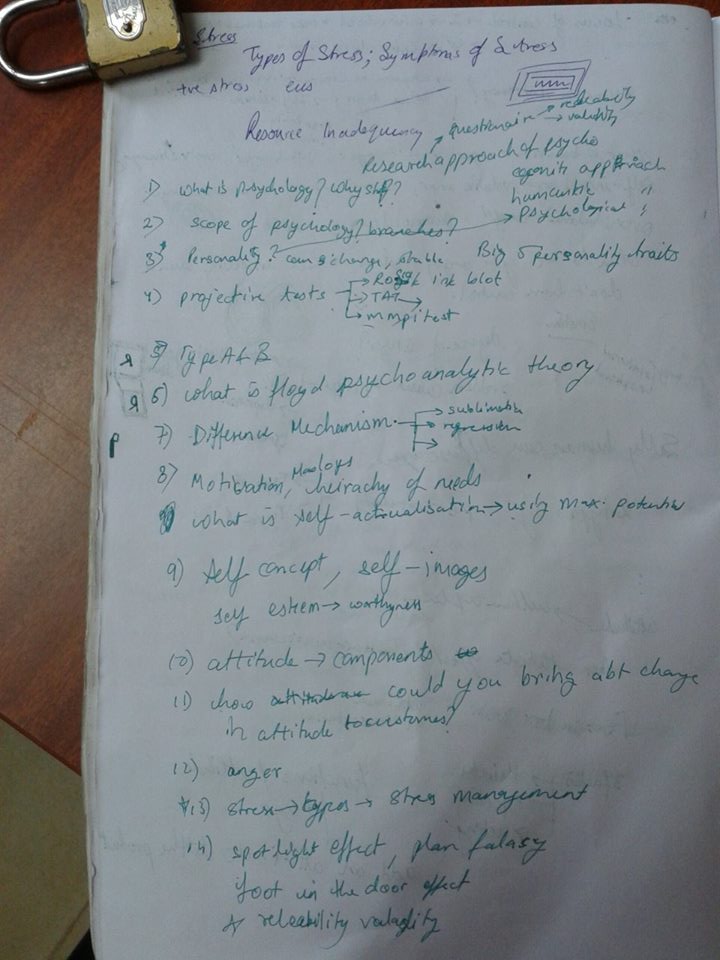 Stress
Types of Stress; Symptoms of Stress
+ve stress eus
Resource Inadequacy
questionair → reliability
→ validity
Research approach of psycho
cognitive approach
humanistic "
psychological "
1) what is psychology? why
2) scope of psychology? branches?
3) Personality? can change, stable
Big 5 personality traits
4) projective tests
ink blot
TAT
mmpi test
5) Type A & B
6) what is floyd psychoanalytic theory
7) Difference Mechanism
sublimation
regression
8) Motivation, Maslows heirachy of needs
what is self-actualisation → using max. potential
9) self concept, self-images
self esteem → worthyness
10) attitude → components
11) how could you bring abt change
in attitude to customes?
12) anger
*13) stress → types → stress management
14) spot light effect, plan falasy
foot in the door effect
reliability